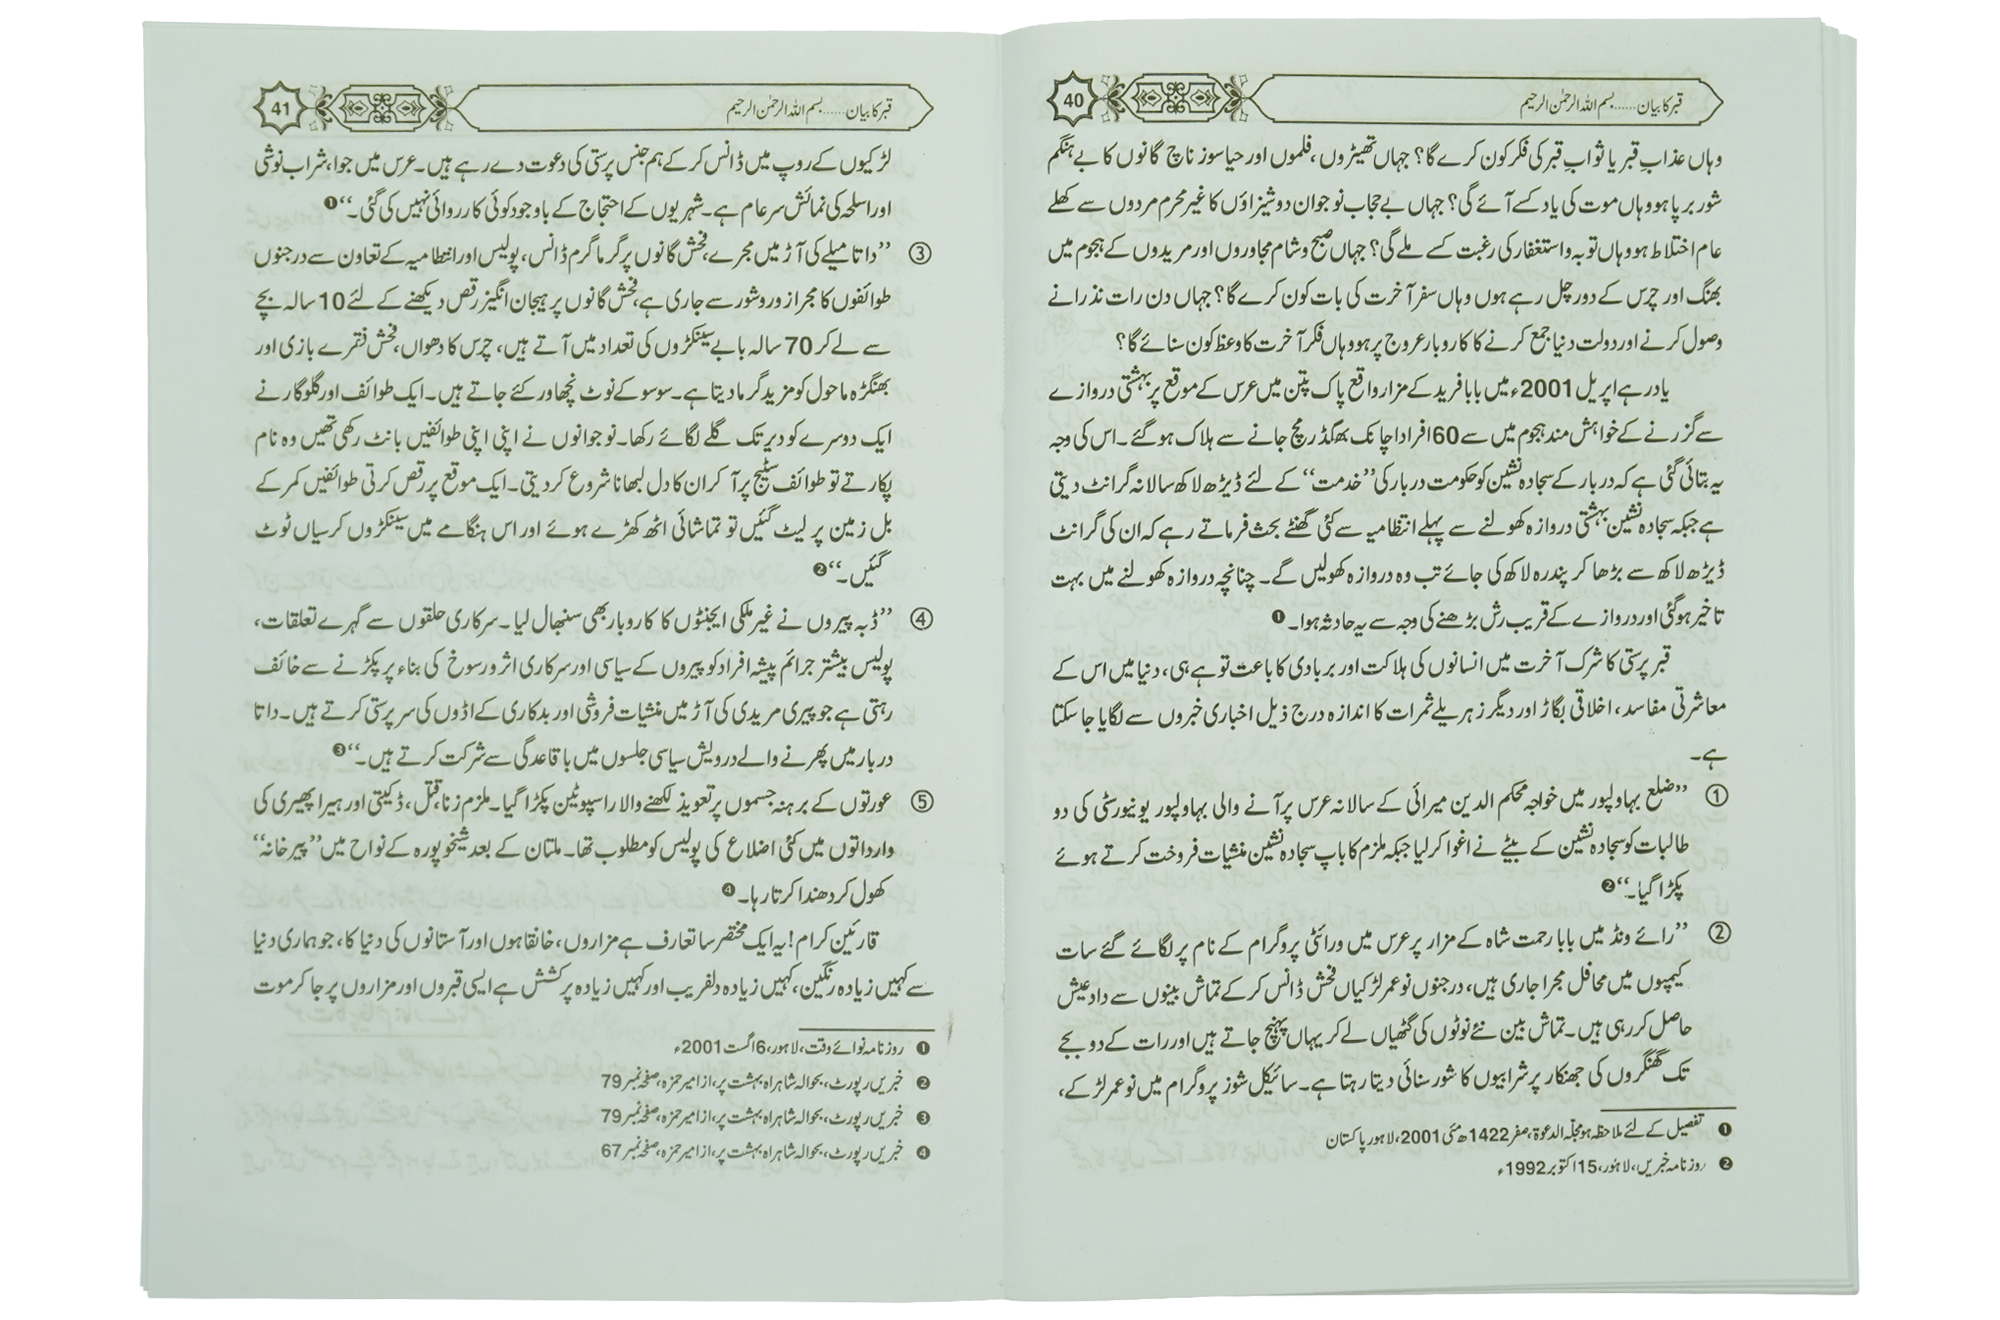 40
قبر کا بیان......بسم اللہ الرحمٰن الرحیم
وہاں عذابِ قبر یا ثوابِ قبر کی فکر کون کرے گا؟ جہاں تھیٹروں، فلموں اور حیا سوز ناچ گانوں کا بے ہنگم
شور برپا ہو وہاں موت کی یاد کسے آئے گی؟ جہاں بے حجاب نوجوان دوشیزاؤں کا غیر محرم مردوں سے کھلے
عام اختلاط ہو وہاں توبہ و استغفار کی رغبت کسے ملے گی؟ جہاں صبح و شام مجاوروں اور مریدوں کے ہجوم میں
بھنگ اور چرس کے دور چل رہے ہوں وہاں سفر آخرت کی بات کون کرے گا؟ جہاں دن رات نذرانے
وصول کرنے اور دولت دنیا جمع کرنے کا کاروبار عروج پر ہو وہاں فکر آخرت کا وعظ کون سنائے گا؟
یاد رہے اپریل 2001ء میں بابا فرید کے مزار واقع پاک پتن میں عرس کے موقع پر بہشتی دروازے
سے گزرنے کے خواہش مند ہجوم میں سے 60 افراد اچانک بھگدڑ مچ جانے سے ہلاک ہوگئے۔ اس کی وجہ
یہ بتائی گئی ہے کہ دربار کے سجادہ نشین کو حکومت دربار کی ’’خدمت‘‘ کے لئے ڈیڑھ لاکھ سالانہ گرانٹ دیتی
ہے جبکہ سجادہ نشین بہشتی دروازہ کھولنے سے پہلے انتظامیہ سے کئی گھنٹے بحث فرماتے رہے کہ ان کی گرانٹ
ڈیڑھ لاکھ سے بڑھا کر پندرہ لاکھ کی جائے تب وہ دروازہ کھولیں گے۔ چنانچہ دروازہ کھولنے میں بہت
تاخیر ہوگئی اور دروازے کے قریب رش بڑھنے کی وجہ سے یہ حادثہ ہوا۔❶
قبر پرستی کا شرک آخرت میں انسانوں کی ہلاکت اور بربادی کا باعث تو ہے ہی، دنیا میں اس کے
معاشرتی مفاسد، اخلاقی بگاڑ اور دیگر زہریلے ثمرات کا اندازہ درج ذیل اخباری خبروں سے لگایا جاسکتا
ہے۔
① ’’ضلع بہاولپور میں خواجہ محکم الدین میرائی کے سالانہ عرس پر آنے والی بہاولپور یونیورسٹی کی دو
طالبات کو سجادہ نشین کے بیٹے نے اغوا کرلیا جبکہ ملزم کا باپ سجادہ نشین منشیات فروخت کرتے ہوئے
پکڑا گیا۔‘‘❷
② ’’رائے ونڈ میں بابا رحمت شاہ کے مزار پر عرس میں ورائٹی پروگرام کے نام پر لگائے گئے سات
کیمپوں میں محافل مجرا جاری ہیں، درجنوں نو عمر لڑکیاں فحش ڈانس کرکے تماش بینوں سے داد عیش
حاصل کررہی ہیں۔ تماش بین نئے نوٹوں کی گتھیاں لے کر یہاں پہنچ جاتے ہیں اور رات کے دو بجے
تک گھنگروں کی جھنکار پر شرابیوں کا شور سنائی دیتا رہتا ہے۔ سائیکل شوز پروگرام میں نو عمر لڑکے،
❶ تفصیل کے لئے ملاحظہ ہو مجلّہ الدعوۃ، صفر 1422ھ مئی 2001، لاہور پاکستان
❷ روزنامہ خبریں، لاہور، 15 اکتوبر 1992ء
41
قبر کا بیان......بسم اللہ الرحمٰن الرحیم
لڑکیوں کے روپ میں ڈانس کرکے ہم جنس پرستی کی دعوت دے رہے ہیں۔ عرس میں جوا، شراب نوشی
اور اسلحہ کی نمائش سرعام ہے۔ شہریوں کے احتجاج کے باوجود کوئی کارروائی نہیں کی گئی۔‘‘❶
③ ’’داتا میلے کی آڑ میں مجرے، فحش گانوں پر گرما گرم ڈانس، پولیس اور انتظامیہ کے تعاون سے درجنوں
طوائفوں کا مجرا زور و شور سے جاری ہے، فحش گانوں پر ہیجان انگیز رقص دیکھنے کے لئے 10 سالہ بچے
سے لے کر 70 سالہ بابے سینکڑوں کی تعداد میں آتے ہیں، چرس کا دھواں، فحش فقرے بازی اور
بھنگڑہ ماحول کو مزید گرما دیتا ہے۔ سو سو کے نوٹ نچھاور کئے جاتے ہیں۔ ایک طوائف اور گلوگار نے
ایک دوسرے کو دیر تک گلے لگائے رکھا۔ نوجوانوں نے اپنی اپنی طوائفیں بانٹ رکھی تھیں وہ نام
پکارتے تو طوائف سٹیج پر آ کر ان کا دل لبھانا شروع کردیتی۔ ایک موقع پر رقص کرتی طوائفیں کمر کے
بل زمین پر لیٹ گئیں تو تماشائی اٹھ کھڑے ہوئے اور اس ہنگامے میں سینکڑوں کرسیاں ٹوٹ
گئیں۔‘‘❷
④ ’’ڈبہ پیروں نے غیر ملکی ایجنٹوں کا کاروبار بھی سنبھال لیا۔ سرکاری حلقوں سے گہرے تعلقات،
پولیس بیشتر جرائم پیشہ افراد کو پیروں کے سیاسی اور سرکاری اثر و رسوخ کی بناء پر پکڑنے سے خائف
رہتی ہے جو پیری مریدی کی آڑ میں منشیات فروشی اور بدکاری کے اڈوں کی سرپرستی کرتے ہیں۔ داتا
دربار میں پھرنے والے درویش سیاسی جلسوں میں باقاعدگی سے شرکت کرتے ہیں۔‘‘❸
⑤ عورتوں کے برہنہ جسموں پر تعویذ لکھنے والا راسپوٹین پکڑا گیا۔ ملزم زنا، قتل، ڈکیتی اور ہیرا پھیری کی
وارداتوں میں کئی اضلاع کی پولیس کو مطلوب تھا۔ ملتان کے بعد شیخوپورہ کے نواح میں ’’پیر خانہ‘‘
کھول کر دھندا کرتا رہا۔❹
قارئین کرام! یہ ایک مختصر سا تعارف ہے مزاروں، خانقاہوں اور آستانوں کی دنیا کا، جو ہماری دنیا
سے کہیں زیادہ رنگین، کہیں زیادہ دلفریب اور کہیں زیادہ پر کشش ہے ایسی قبروں اور مزاروں پر جا کر موت
❶ روزنامہ نوائے وقت، لاہور، 6 اگست 2001ء
❷ خبریں رپورٹ، بحوالہ شاہراہ بہشت پر، از امیر حمزہ، صفحہ نمبر 79
❸ خبریں رپورٹ، بحوالہ شاہراہ بہشت پر، از امیر حمزہ، صفحہ نمبر 79
❹ خبریں رپورٹ، بحوالہ شاہراہ بہشت پر، از امیر حمزہ، صفحہ نمبر 67